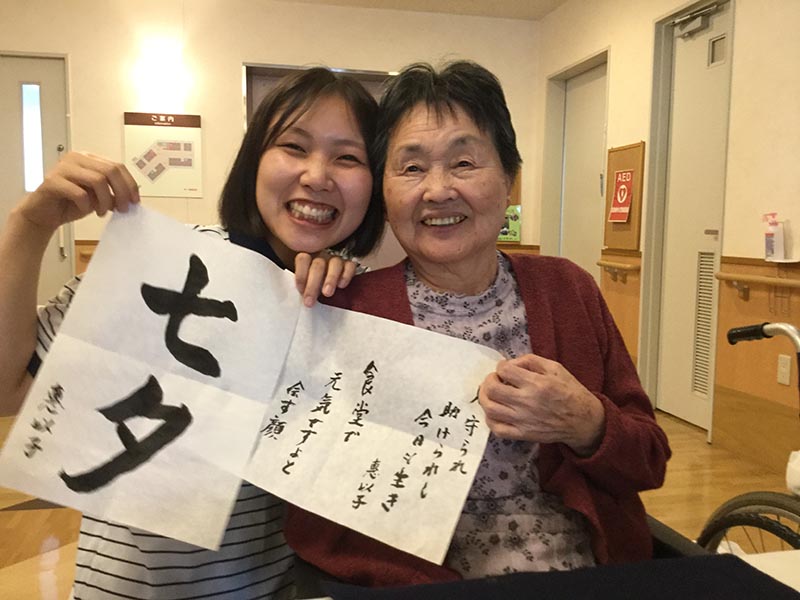 ご案内
AED
七夕
恵以子
守られ
助けられし
今日も生き
恵以子
食堂で
元気ですよと
す顔